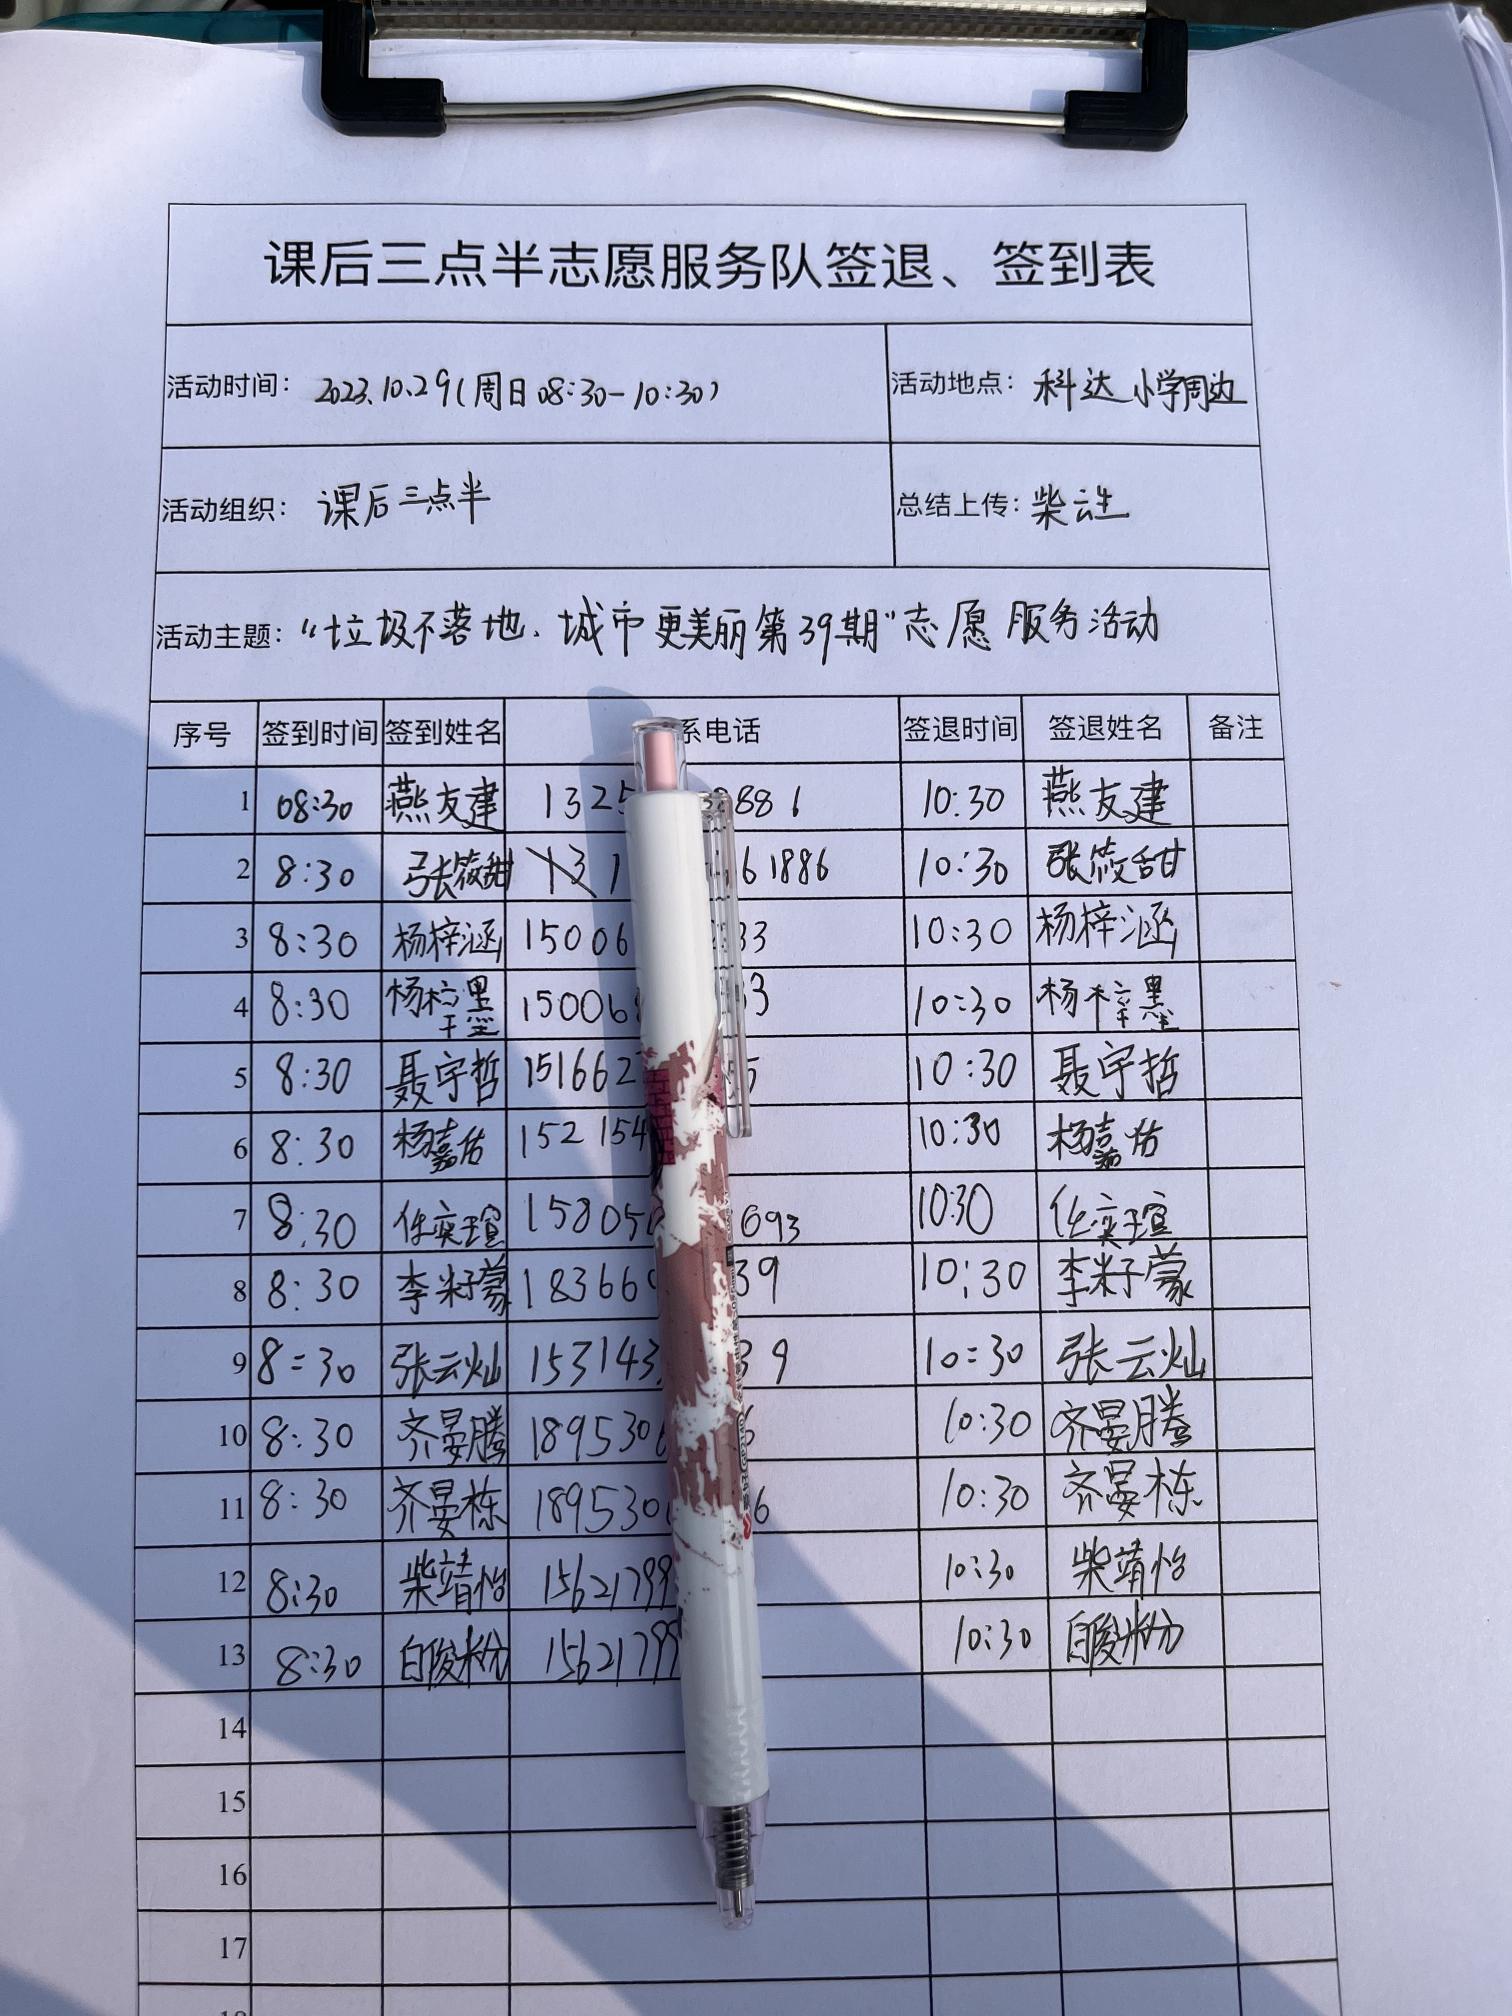 课后三点半志愿服务队签退、签到表
活动时间: 2023.10.29(周日08:30-10:30) 活动地点: 科达小学周边
活动组织: 课后三点半 总结上传: 柴云生
活动主题: “垃圾不落地、城市更美丽第39期”志愿服务活动
序号 签到时间 签到姓名 系电话 签退时间 签退姓名 备注
1 08:30 燕友建 1325 886 10:30 燕友建
2 8:30 张筱甜 131 61886 10:30 张筱甜
3 8:30 杨梓涵 15006 33 10:30 杨梓涵
4 8:30 杨梓墨 15006 3 10:30 杨梓墨
5 8:30 聂宇哲 151662 5 10:30 聂宇哲
6 8:30 杨嘉佑 152154 10:30 杨嘉佑
7 8:30 任奕瑄 15805 693 10:30 任奕瑄
8 8:30 李籽蒙 18366 39 10:30 李籽蒙
9 8:30 张云灿 153143 39 10:30 张云灿
10 8:30 齐晏腾 189530 6 10:30 齐晏腾
11 8:30 齐晏栋 189530 6 10:30 齐晏栋
12 8:30 柴靖怡 15621799 10:30 柴靖怡
13 8:30 白俊粉 15621799 10:30 白俊粉
14
15
16
17